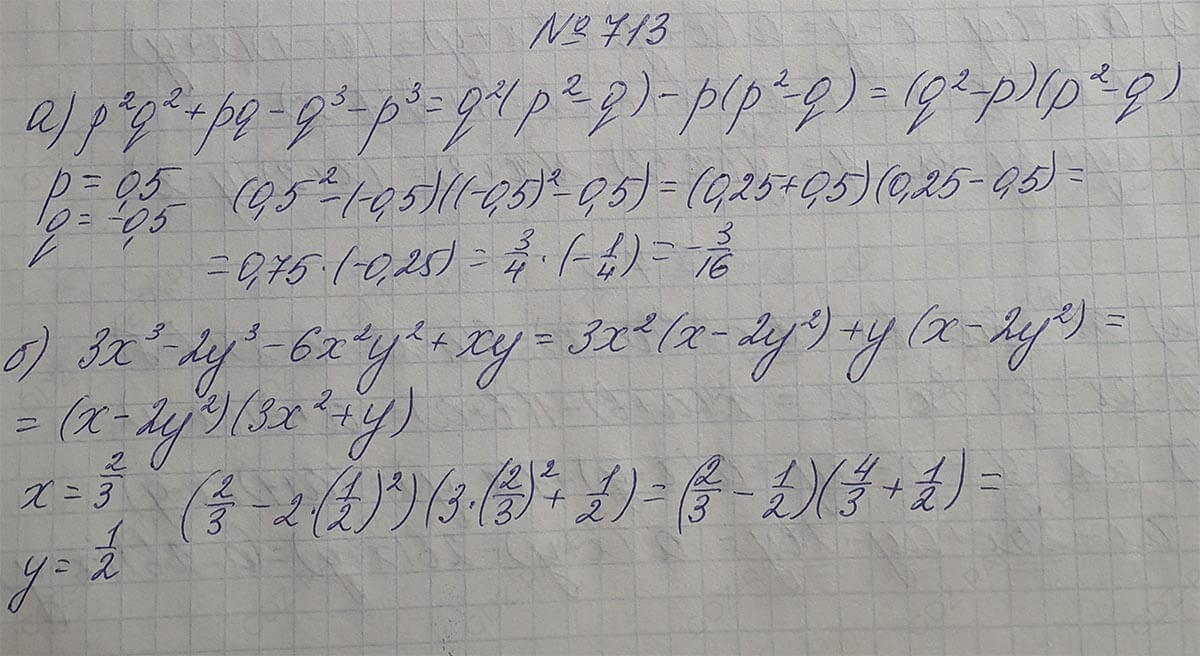 № 713
а) p²q² + pq - q³ - p³ = q²(p² - q) - p(p² - q) = (q² - p)(p² - q)
p = 0,5 (0,5² - (-0,5)((-0,5)² - 0,5) = (0,25 + 0,5)(0,25 - 0,5) =
q = -0,5
= 0,75 · (-0,25) = 3/4 · (-1/4) = -3/16
б) 3x³ - 2y³ - 6x²y² + xy = 3x²(x - 2y²) + y(x - 2y²) =
= (x - 2y²)(3x² + y)
x = 2/3 (2/3 - 2·(1/2)²)(3·(2/3)² + 1/2) = (2/3 - 1/2)(4/3 + 1/2) =
y = 1/2